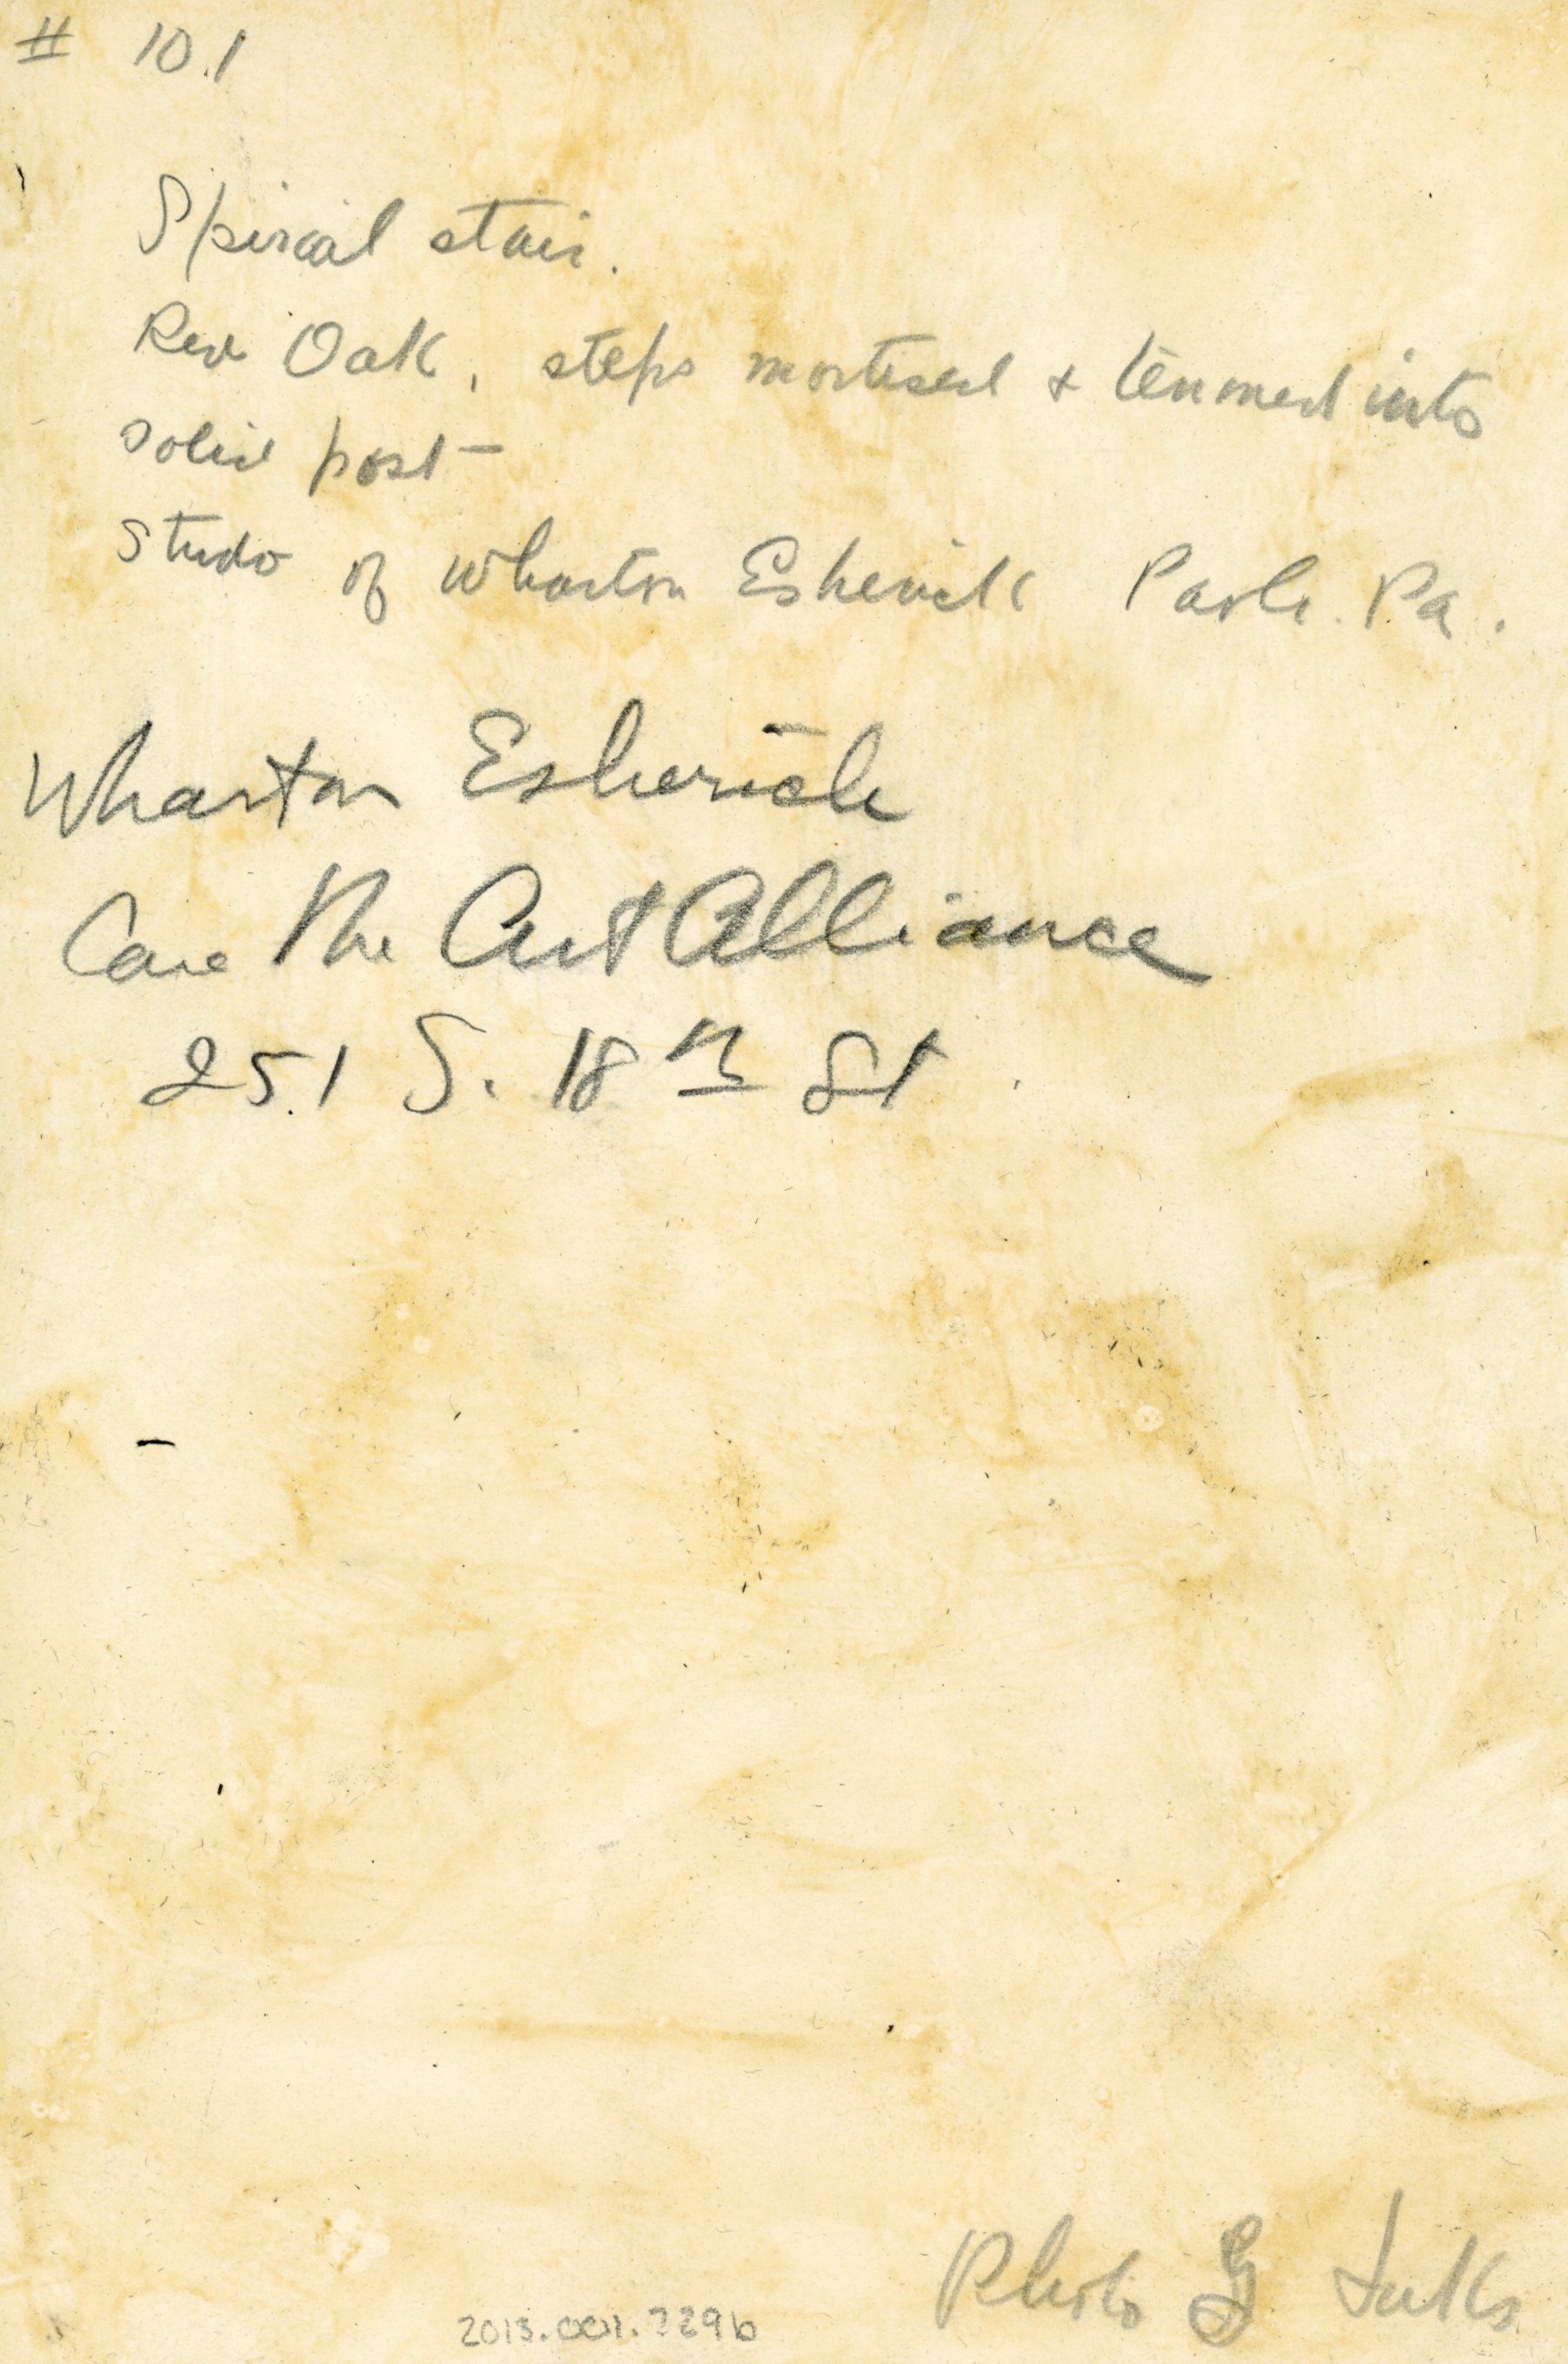 # 101
Spiral stair.
Red Oak, steps mortised + tenoned into
solid post –
Studo of Wharton Esherick Paoli. Pa.
Wharton Esherick
Care The Art Alliance
251 S. 18th St.
Photo
2013.001.229b